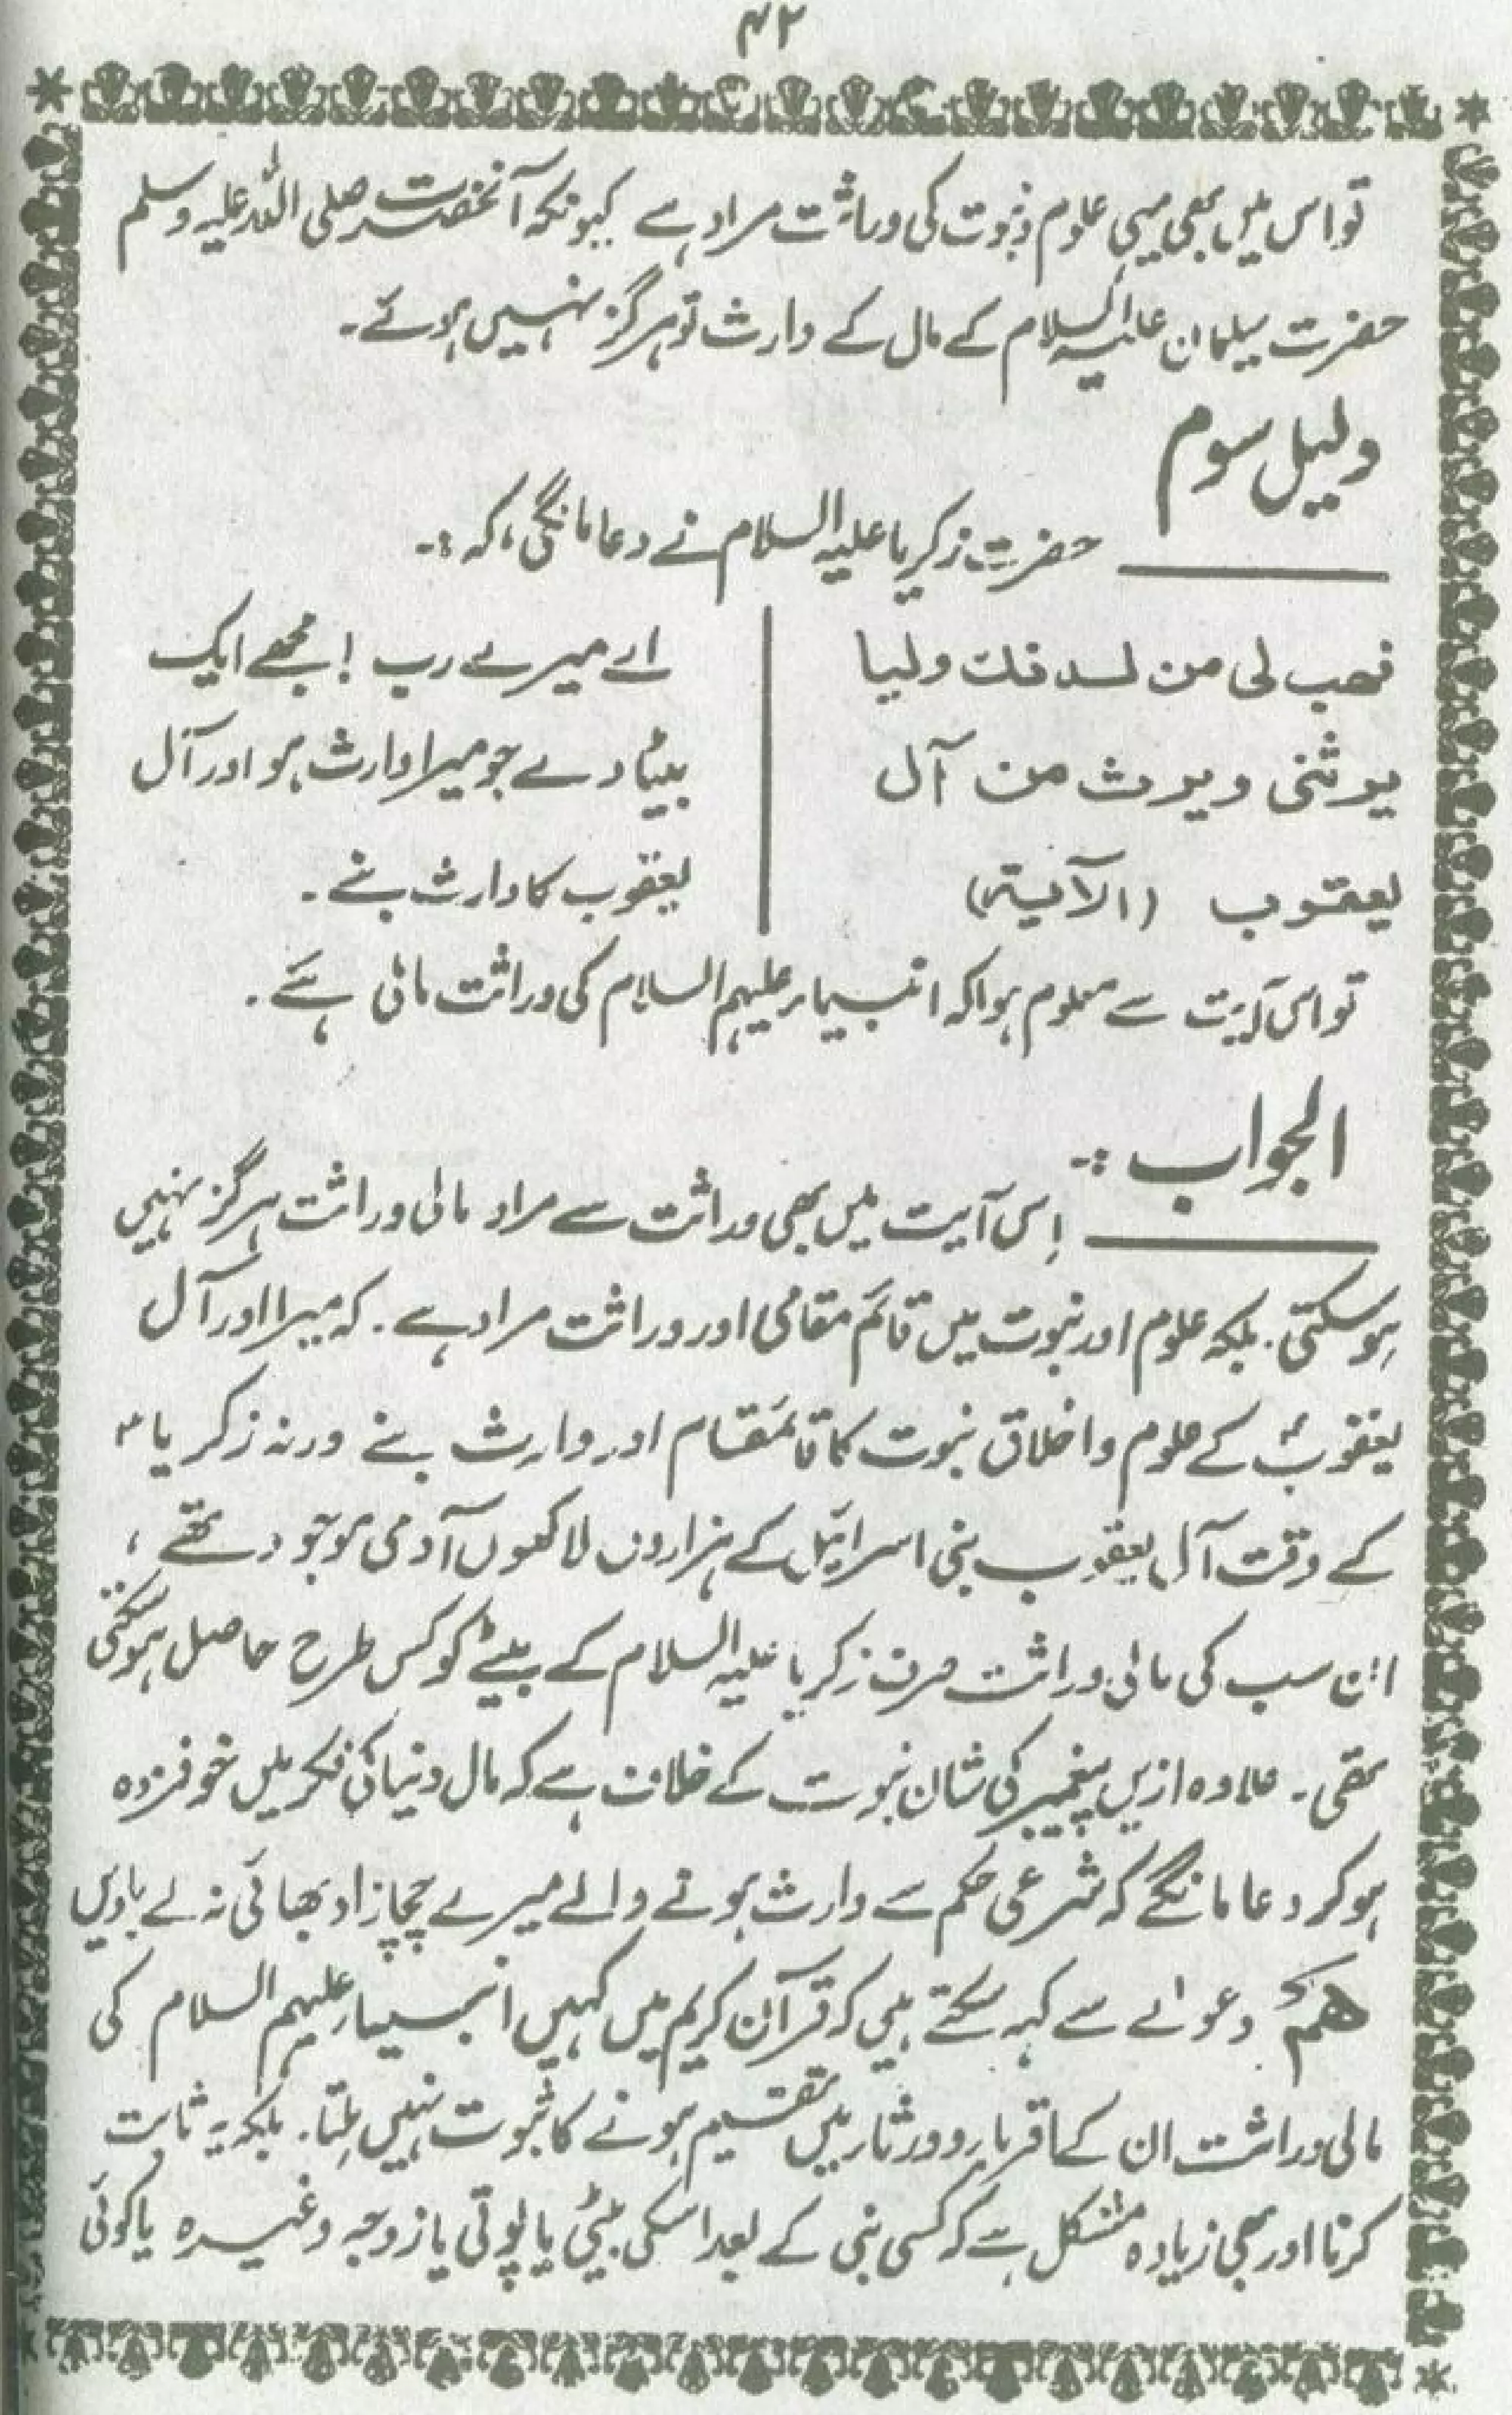 ۴۲
تو اس میں بھی یہی علوم نبوت کی وراثت مراد ہے کیونکہ آنحضرت صلی اللہ علیہ وسلم
حضرت سیلمان علیہ السلام کے مال کے وارث تو ہرگز نہیں ہوئے۔
دلیل سوم
حضرت زکریا علیہ السلام نے دعا مانگی، کہ :۔
فھب لی من لدنک ولیا
یرثنی ویرث من آل
یعقوب (الآیۃ)
اے میرے رب ! مجھے ایک
بیٹا دے جو میرا وارث ہو اور آل
یعقوب کا وارث بنے ۔
تو اس آیت سے معلوم ہوا کہ انبیاء علیہم السلام کی وراثت مالی ہے ۔
الجواب :۔
اِس آیت میں بھی وراثت سے مراد مالی وراثت ہرگز نہیں
ہوسکتی ۔ بلکہ علوم اور نبوت میں قائم مقامی اور وراثت مراد ہے ۔ کہ میرا اور آل
یعقوبؑ کے علوم و اخلاق نبوت کا قائمقام اور وارث بنے ورنہ زکریا ؑ
کے وقت آل یعقوب بنی اسرائیل کے ہزاروں لاکھوں آدمی موجود تھے ،
ان سب کی مالی وراثت صرف زکریا علیہ السلام کے بیٹے کو کس طرح حاصل ہوسکتی
تھی ۔ علاوہ ازیں پیغمبر کی شان نبوت کے خلاف ہے کہ مال دنیا کی فکر میں خوفزدہ
ہو کر دعا مانگے کہ شرعی حکم سے وارث ہونے والے میرے چچا زاد بھائی نہ لے جاویں
ھم دعوٰے سے کہہ سکتے ہیں کہ قرآن کریم میں کہیں انبیاء علیہم السلام کی
مالی وراثت ان کے اقرباء و ورثاء میں تقسیم ہونے کا ثبوت نہیں ملتا ۔ بلکہ یہ ثابت
کرنا اور بھی زیادہ مشکل ہے کہ کسی نبی کے بعد اسکی بیٹی یا پوتی یا زوجہ وغیرہ یا کوئی